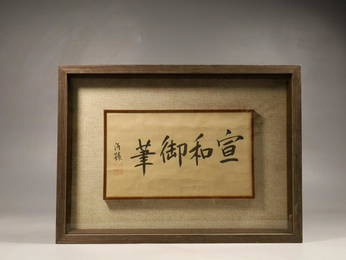 宣和御筆